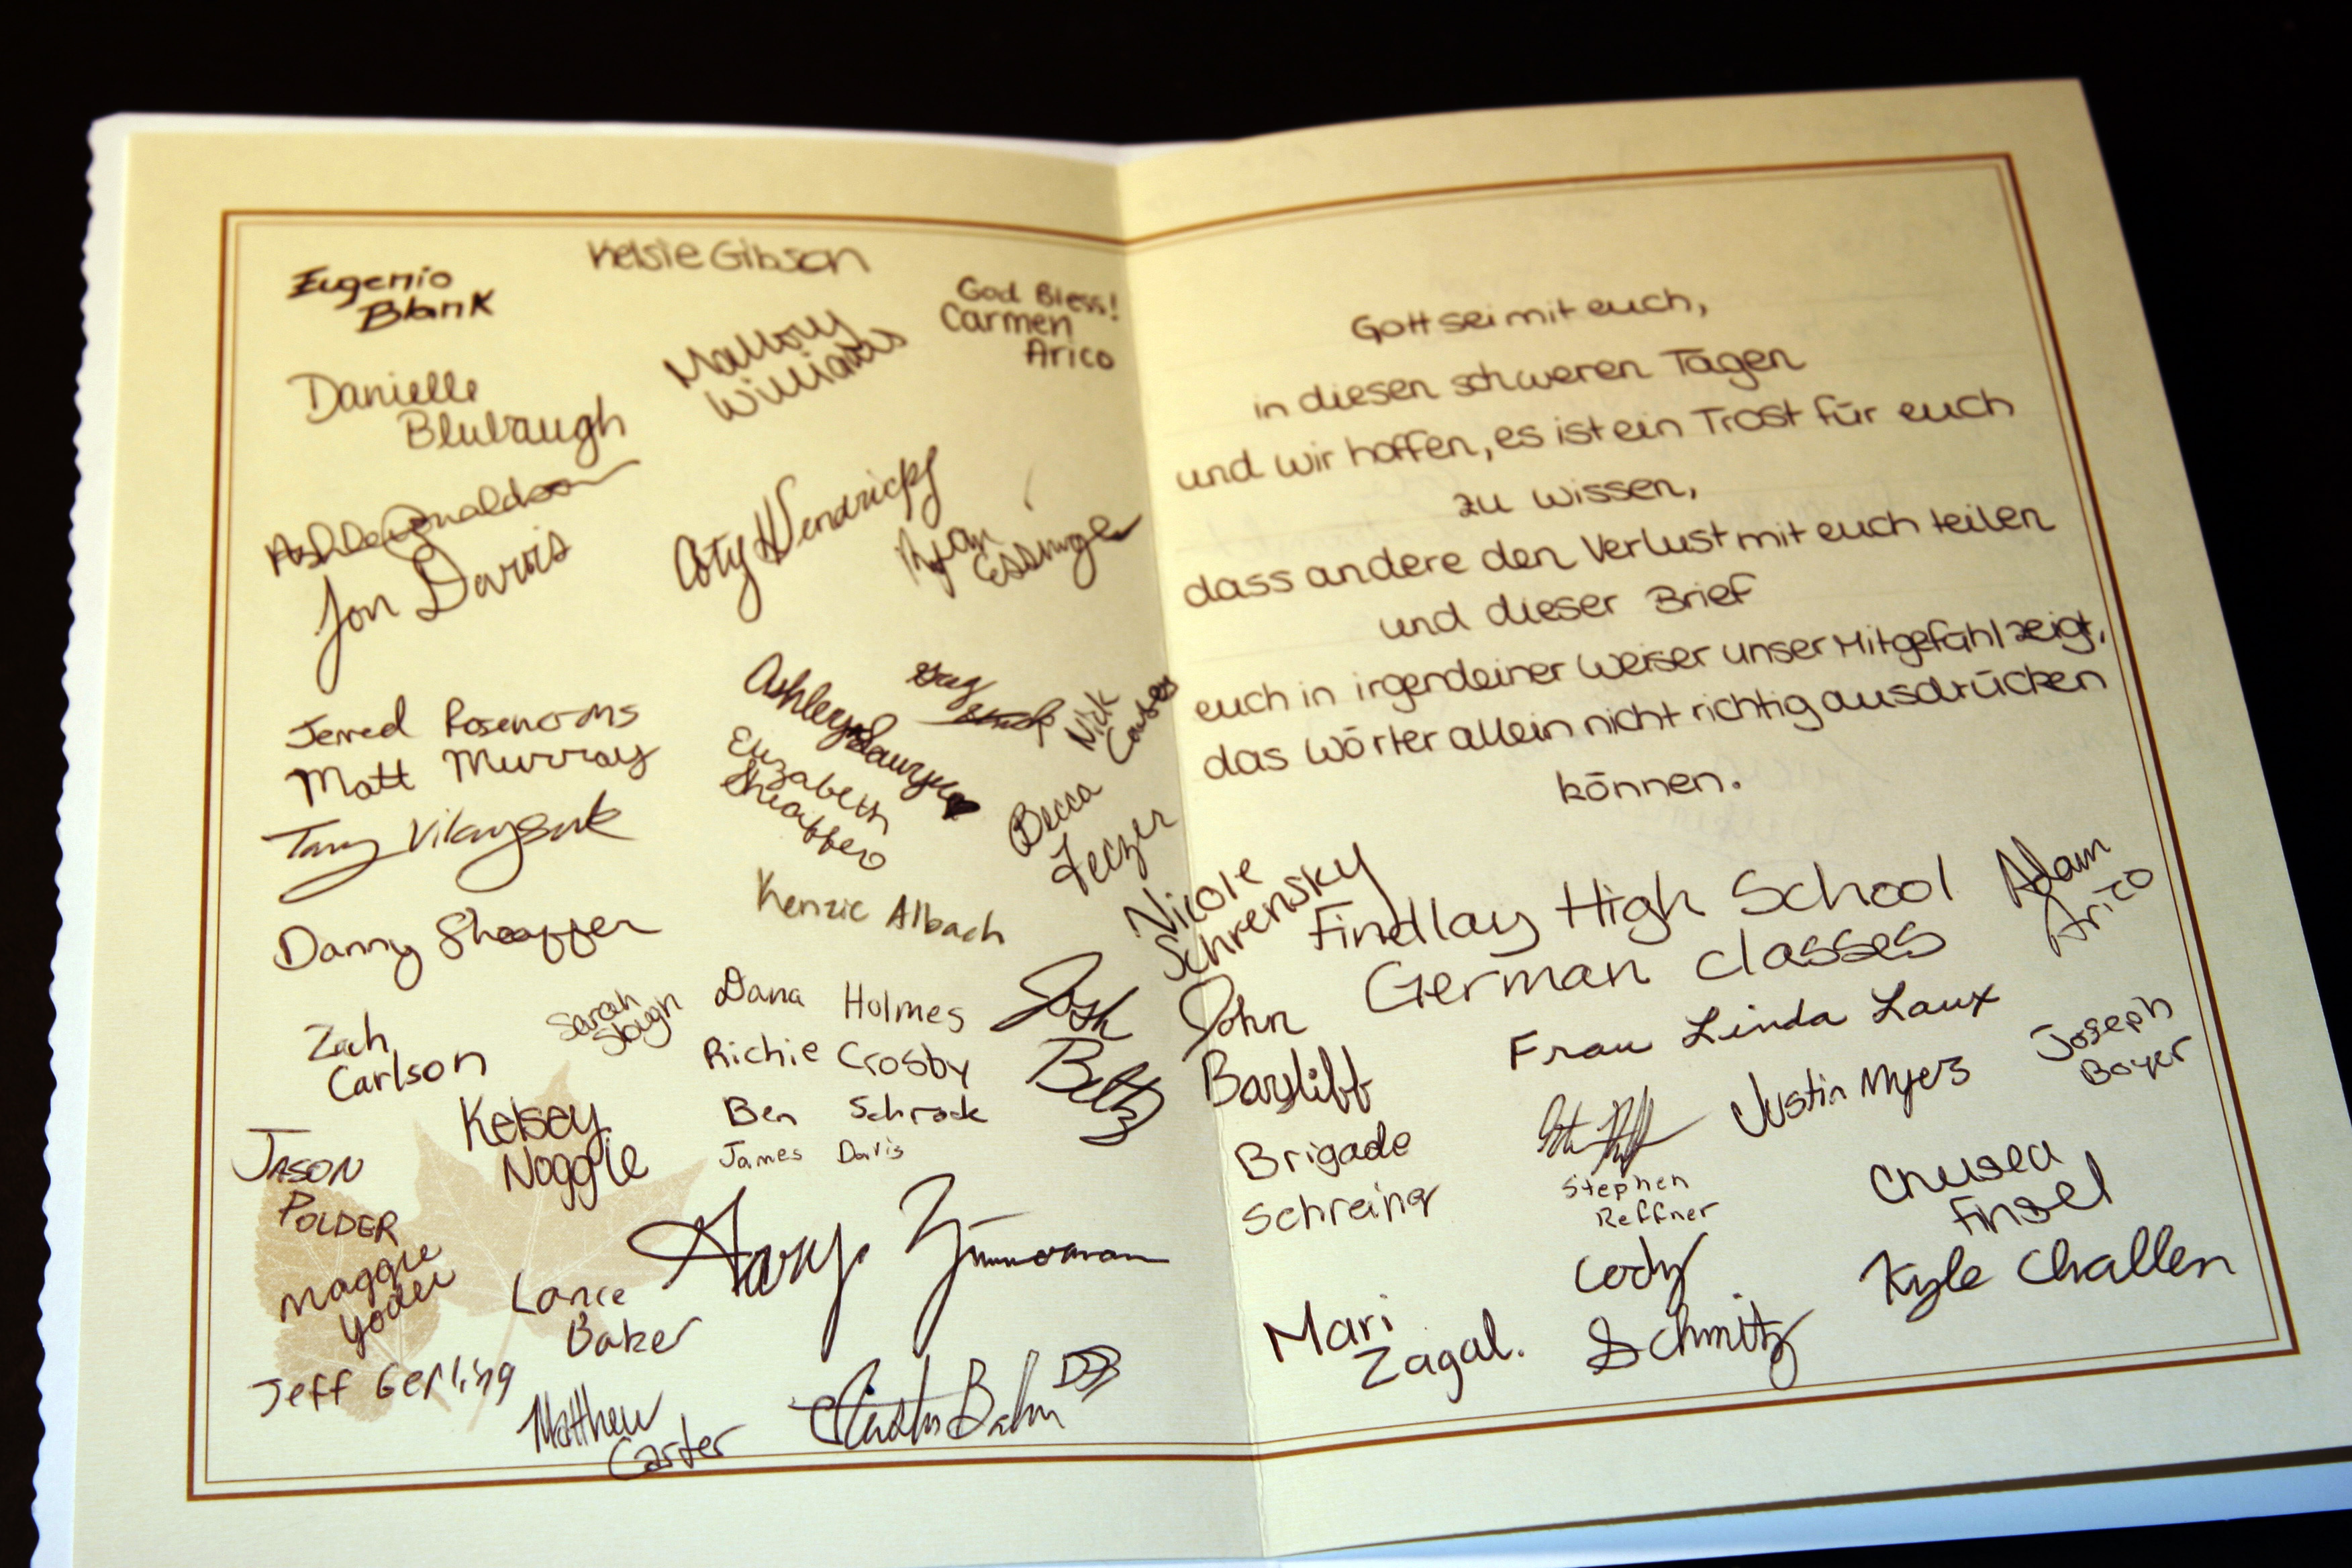 Kelsie Gibson
Eugenio
Blank
God Bless!
Carmen
Arico
Mallory
Williams
Danielle
Blubaugh
Jon Davis
Coty Hendricks
Ryan
Essinger
Jerred
Matt Murray
Ashley
Elizabeth
Sheaffer
Nick
Becca
Feczer
Tany
Danny Sheaffer
Kenzie Albach
Zach
Carlson
Sarah
Slough
Dana Holmes
Richie Crosby
Ben Schrock
James Davis
Josh
Beltz
Kelsey
Noggle
JASON
POLDER
Maggie
Yoder
Lance
Baker
Zimmerman
Jeff Gerling
Matthew
Carter
Gott sei mit euch,
in diesen schweren Tagen
und wir hoffen, es ist ein Trost für euch
zu wissen,
dass andere den Verlust mit euch teilen
und dieser Brief
euch in irgendeiner weiser unser Mitgefühl zeigt,
das Wörter allein nicht richtig ausdrücken
können.
Nicole
Schrensky
Findlay High School
German classes
Frau Linda Laux
Adam
Arico
John
Bayliff
Joseph
Boyer
Justin Myers
Brigade
Schreing
Stephen
Reffner
Chelsea
Finsel
Cody
Schmitz
Kyle Challen
Mari
Zagal.